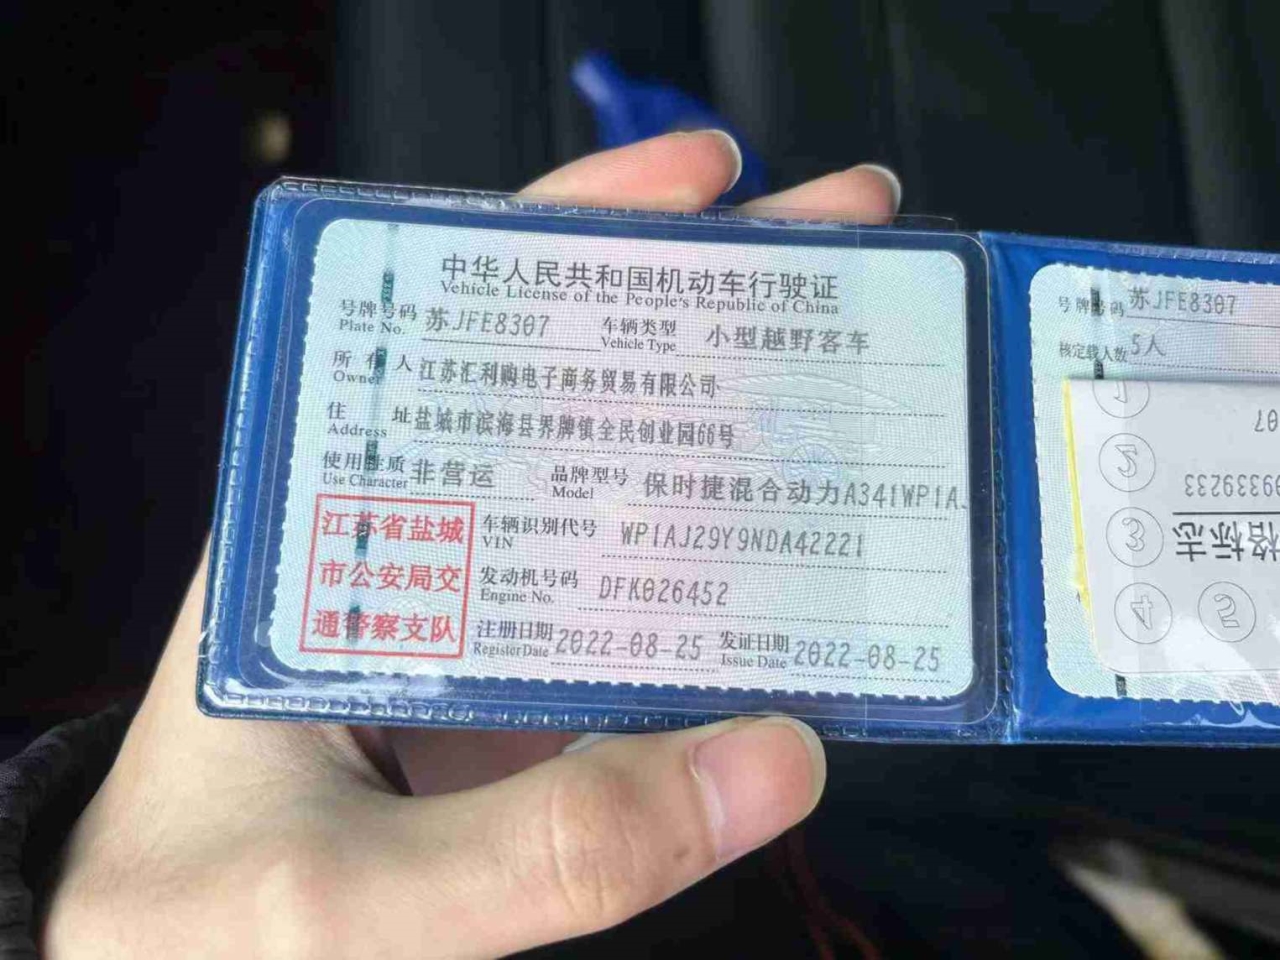 中华人民共和国机动车行驶证
Vehicle License of the People's Republic of China
号牌号码 苏JFE8307 车辆类型 小型越野客车
Plate No. Vehicle Type
所有人 江苏汇利购电子商务贸易有限公司
Owner
住址 盐城市滨海县界牌镇全民创业园66号
Address
使用性质 非营运 品牌型号 保时捷混合动力A341WP1A
Use Character Model
江苏省盐城
市公安局交
通警察支队
车辆识别代号 WP1AJ29Y9NDA42221
VIN
发动机号码 DFK026452
Engine No.
注册日期 2022-08-25 发证日期 2022-08-25
Register Date Issue Date
号牌号码 苏JFE8307
核定载人数 5人
1
2
3
4
5
07
99339233
格标志